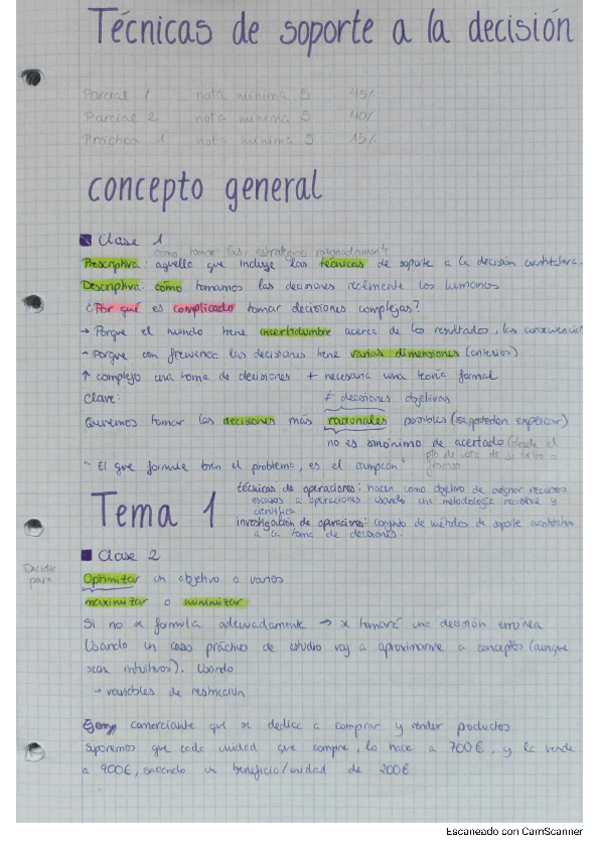 Técnicas de soporte a la decisión
Parcial 1 nota mínima 5 45%
Parcial 2 nota mínima 5 40%
Práctica 1 nota mínima 5 15%
concepto general
Clase 1
como tomar las estrategias
Prescriptiva: aquella que incluye las técnicas de soporte a la decisión cuantitativa.
Descriptiva: cómo tomamos las decisiones realmente los humanos
¿Por qué es complicado tomar decisiones complejas?
→ Porque el mundo tiene incertidumbre acerca de los resultados, las consecuencias
→ Porque con frecuencia las decisiones tiene varias dimensiones (criterios)
↑ complejo una toma de decisiones + necesaria una teoría formal
Clave: ≠ decisiones objetivas
Queremos tomar las decisiones más racionales posibles (se puedan explicar)
no es sinónimo de acertado (desde el
pto de vista de su éxito o
fracaso
"El que formule bien el problema, es el campeón"
Tema 1
técnicas de operaciones: hacen como objetivo de asignar recursos
escasos a operaciones usando una metodología racional y
científica
investigación de operaciones: conjunto de métodos de soporte cuantitativo
a la toma de decisiones.
Clase 2
Decidir
para
Optimizar un objetivo o varios
maximizar o minimizar
Si no se formula adecuadamente → se tomará una decisión errónea
Usando un caso práctico de estudio voy a aproximarme a conceptos (aunque
sean intuitivos). Usando
→ variables de restricción
comerciante que se dedica a comprar y vender productos
Suponemos que cada unidad que compre, lo hace a 700€, y la vende
a 900€, sacando un beneficio/unidad de 200€
Escaneado con CamScanner